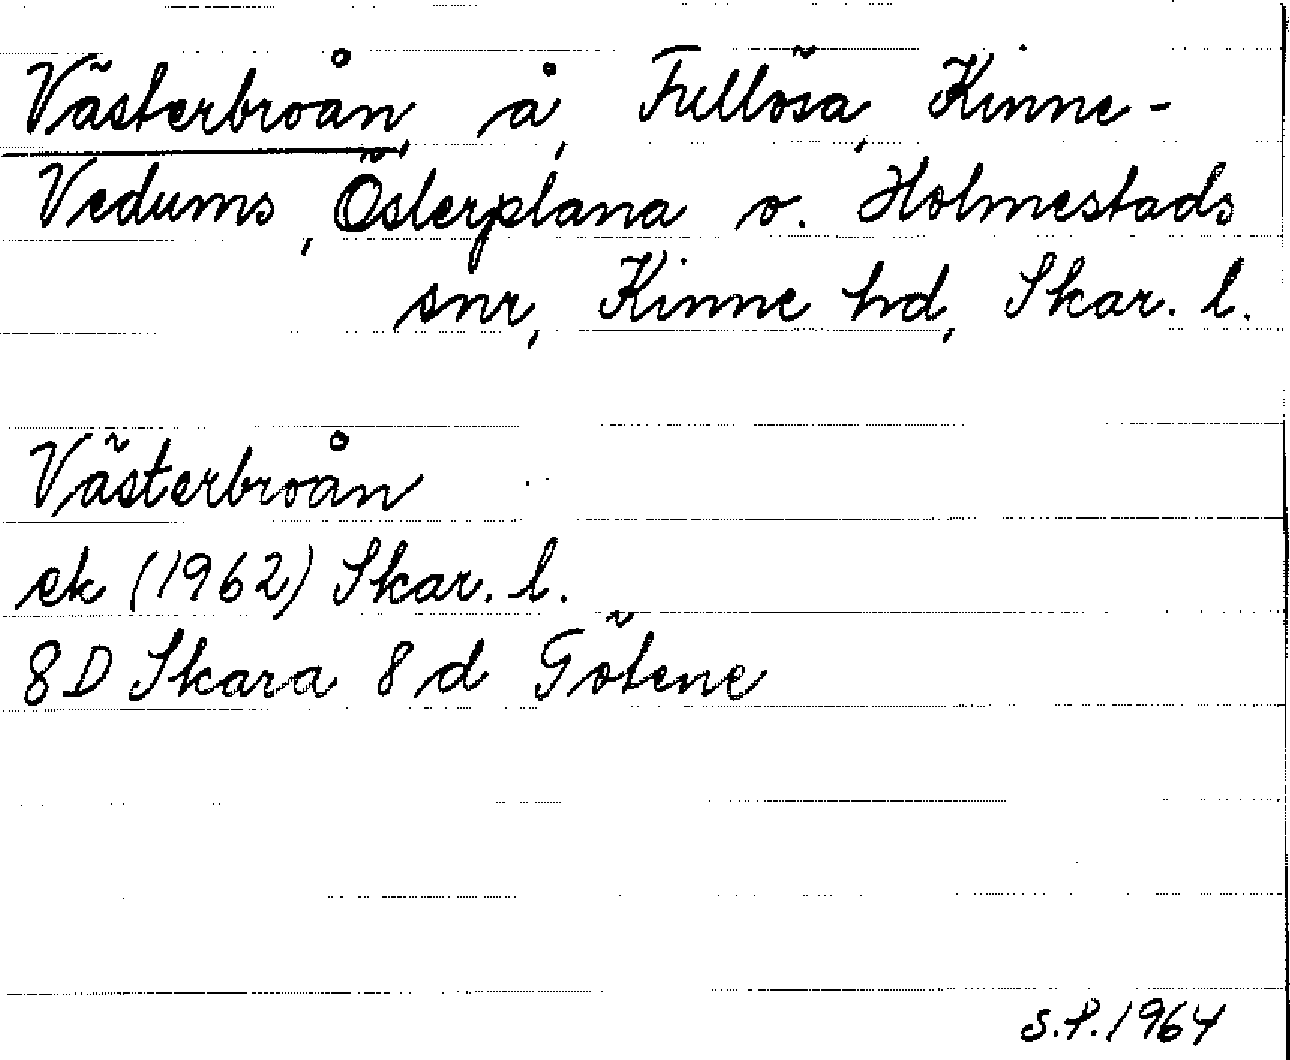 Västerbroån, å, Fullösa, Kinne-
Vedums, Österplana o. Holmestads
snr, Kinne hd, Skar. l.
Västerbroån
ek (1962) Skar. l.
8D Skara 8d Götene
S.P. 1964